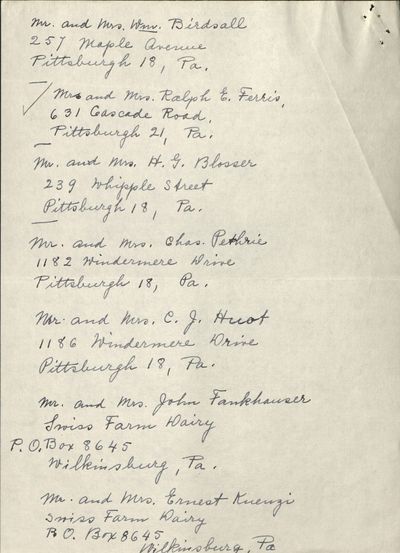 Mr. and Mrs. Wm. Birdsall
257 Maple Avenue
Pittsburgh 18, Pa.
Mrs and Mrs. Ralph E. Ferris,
631 Cascade Road,
Pittsburgh 21, Pa.
Mr. and Mrs. H. G. Blosser
239 Whipple Street
Pittsburgh 18, Pa.
Mr. and Mrs. Chas. Pethrie
1182 Windermere Drive
Pittsburgh 18, Pa.
Mr. and Mrs. C. J. Huot
1186 Windermere Drive
Pittsburgh 18, Pa.
Mr. and Mrs. John Fankhauser
Swiss Farm Dairy
P.O. Box 8645
Wilkinsburg, Pa.
Mr. and Mrs. Ernest Kuenzi
Swiss Farm Dairy
P.O. Box 8645
Wilkinsburg, Pa